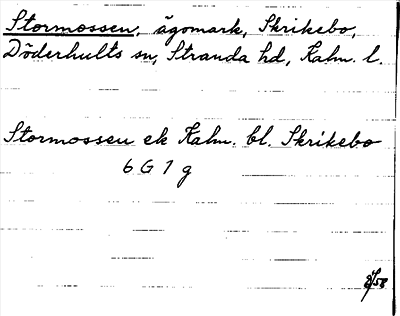 Stormossen, ägomark, Skrikebo,
Döderhults sn, Stranda hd, Kalm. l.
Stormossen ek Kalm. bl. Skrikebo
6 G 1 g